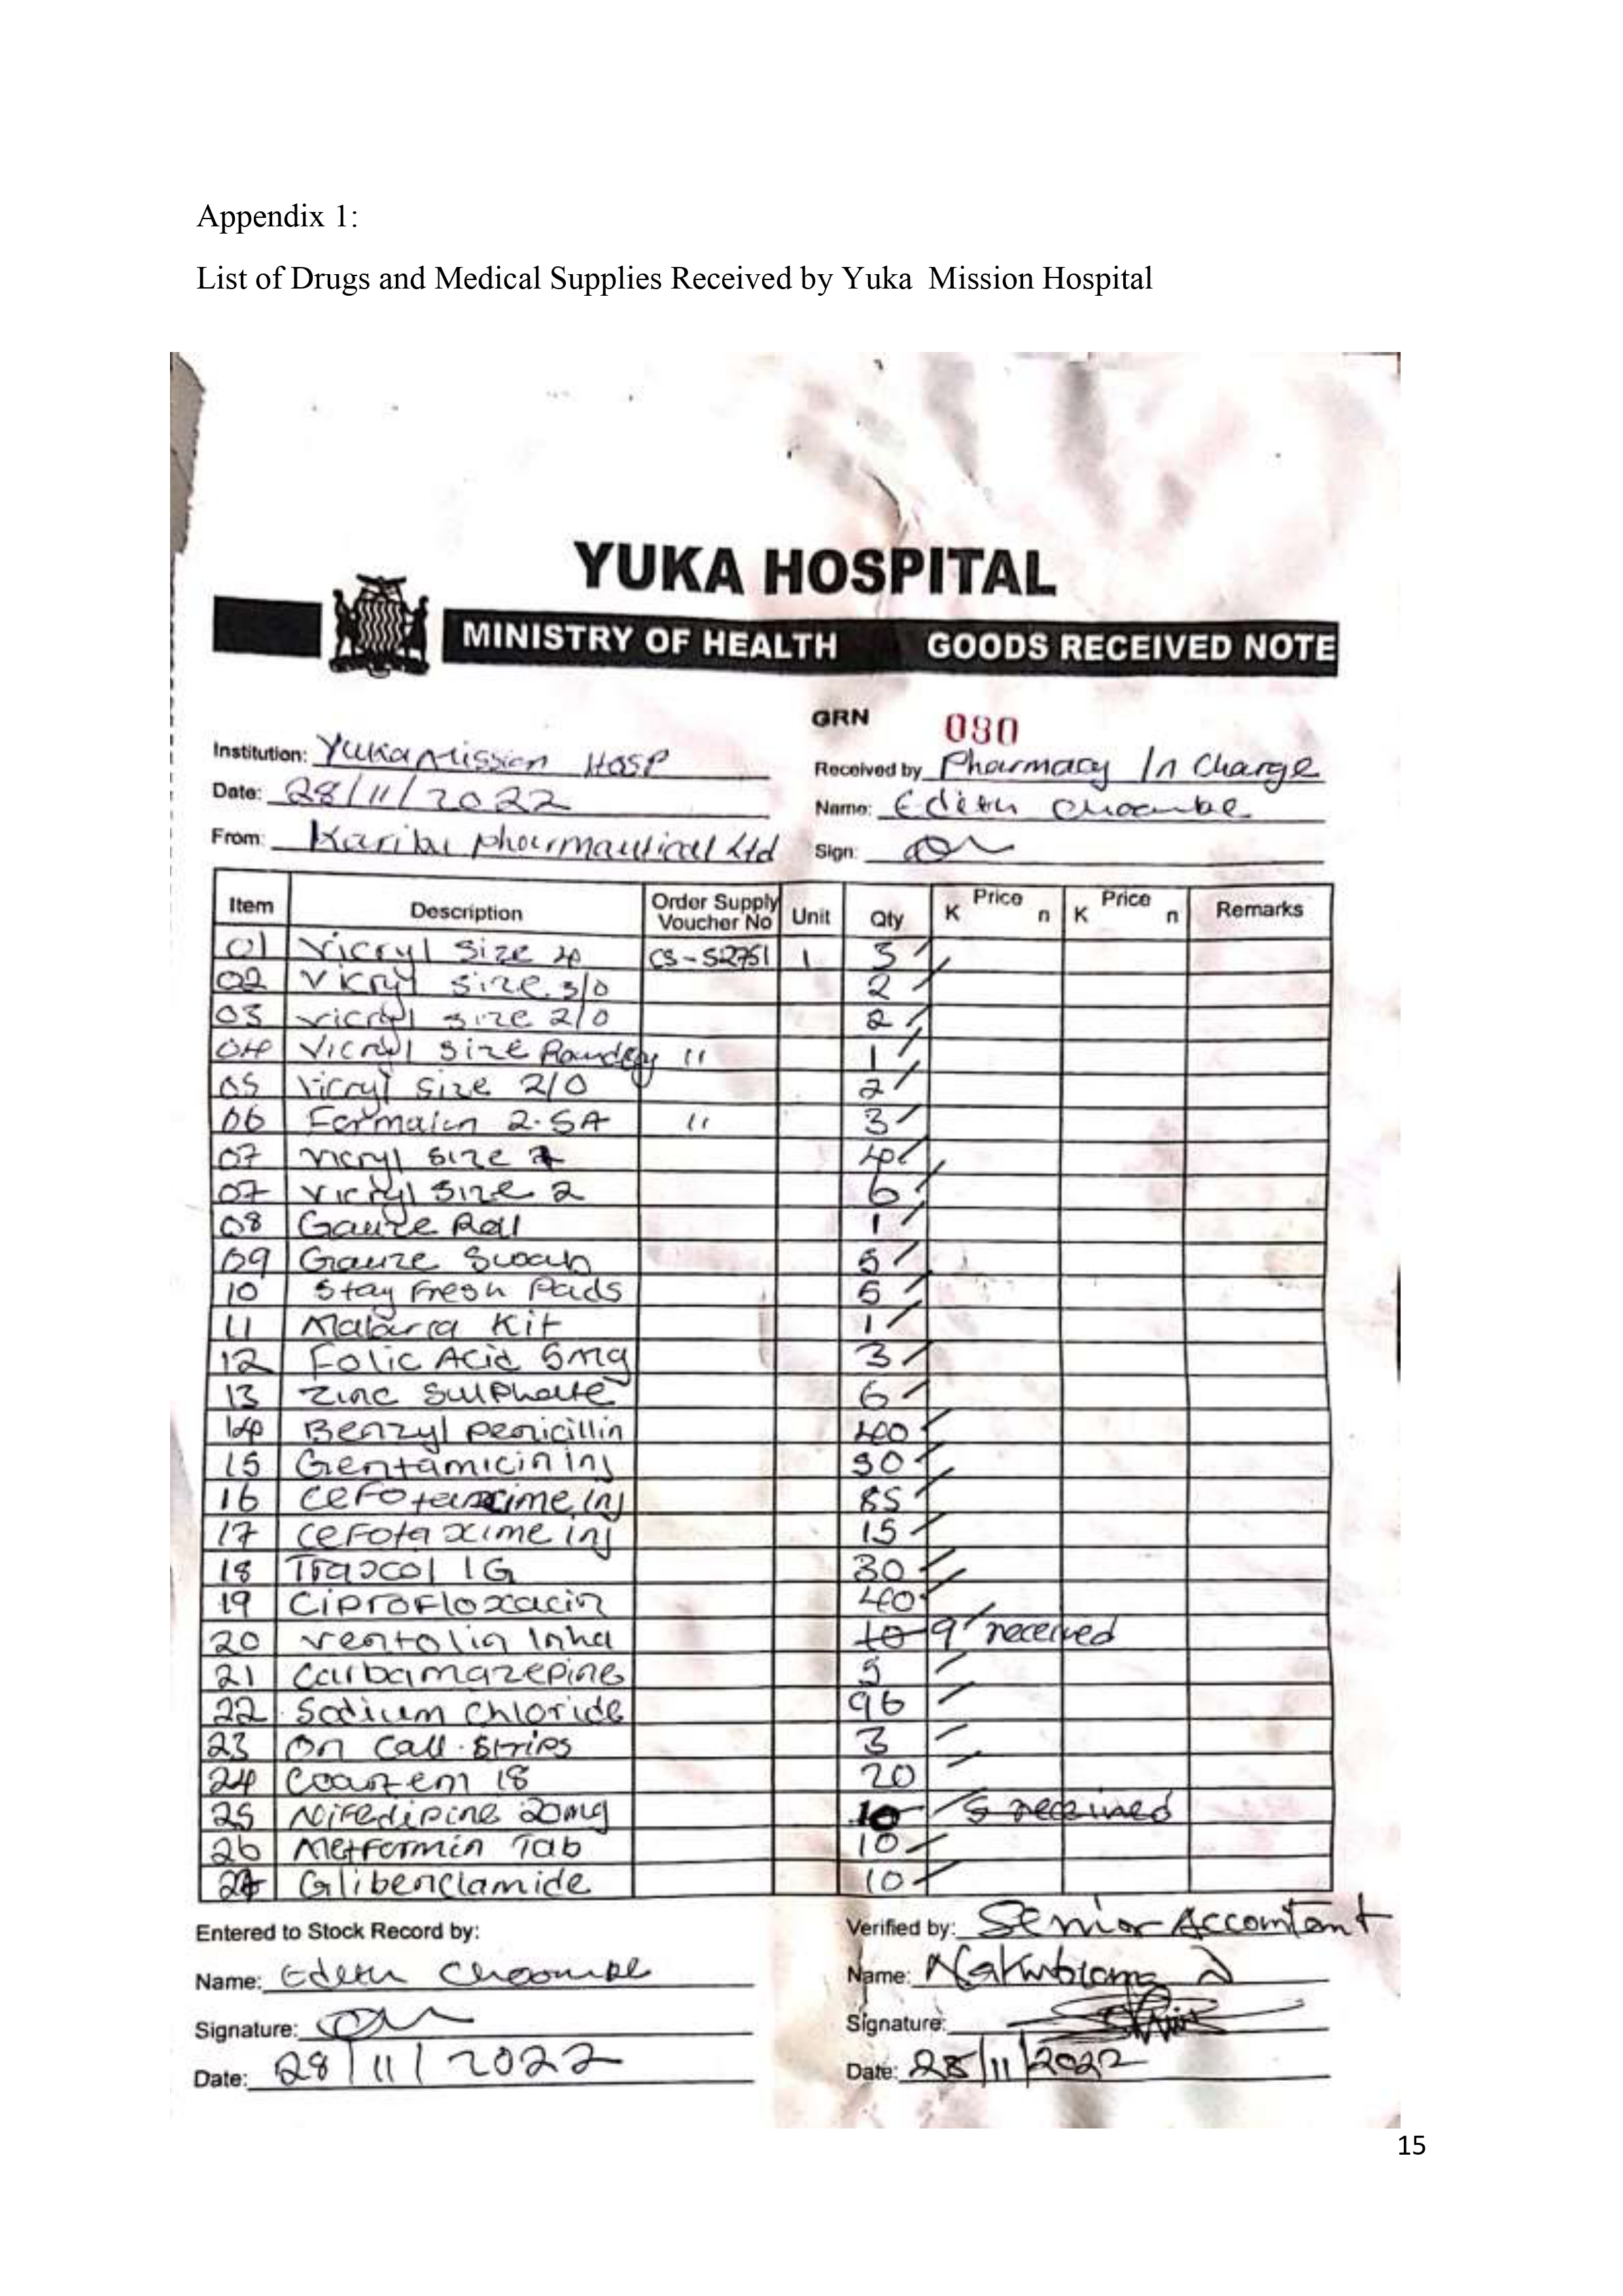 Appendix 1:
List of Drugs and Medical Supplies Received by Yuka Mission Hospital
YUKA HOSPITAL
MINISTRY OF HEALTH GOODS RECEIVED NOTE
GRN 080
Institution: Yuka Mission Hosp Received by Pharmacy In Charge
Date: 28/11/2022 Name: Edith Choombe
From: Karibu pharmautical Ltd Sign:
Item Description Order Supply Voucher No Unit Qty Price K n Price K n Remarks
01 Vicryl Size CS-S2751 1 3
02 Vicryl size 3/0 2
03 Vicryl size 2/0 2
04 Vicryl Size " 1
05 Vicryl size 2/0 2
06 Formalin 2.5 " 3
07 Vicryl size 4
07 Vicryl size 2 6
08 Gauze Roll 1
09 Gauze Swab 5
10 Stay Fresh Pads 5
11 Malaria Kit 1
12 Folic Acid 5mg 3
13 Zinc Sulphate 6
14 Benzyl penicillin 400
15 Gentamicin inj
16 Cefotaxime inj 85
17 Cefotaxime inj 15
18 1G 30
19 Ciprofloxacin 40
20 Ventolin Inha 10 9 received
21 Carbamazepine 5
22 Sodium Chloride 96
23 On Call Strips 3
24 Coartem 18 20
25 Nifedipine 20mg 10 5 received
26 Metformin Tab 10
27 Glibenclamide 10
Entered to Stock Record by: Verified by: Senior Accontant
Name: Edith Choombe Name:
Signature: Signature:
Date: 28/11/2022 Date: 28/11/2022
15